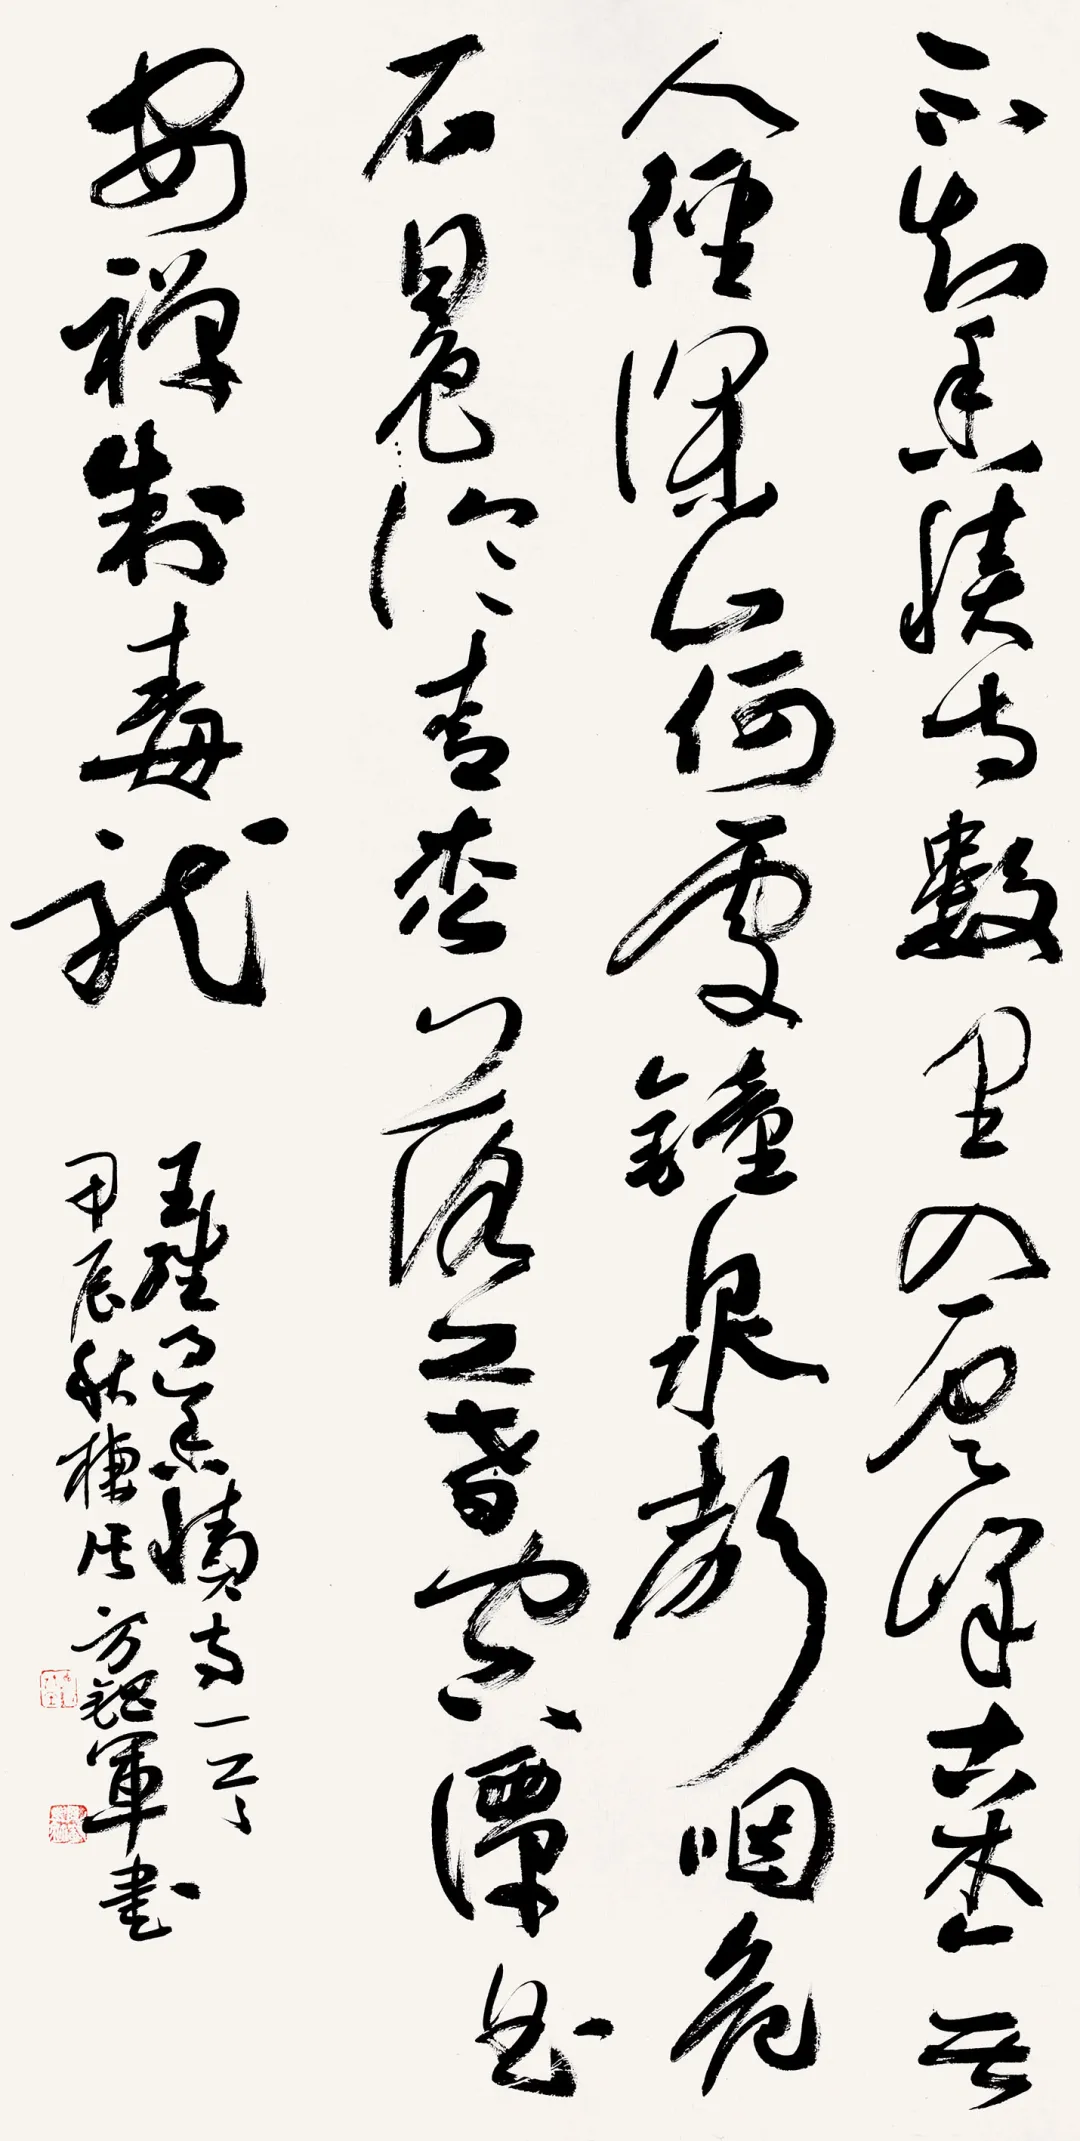 不知香積寺數里入雲峰古木無
人徑深山何處鐘泉聲咽危
石日色冷青松薄暮空潭曲
安禪制毒龍
王維過香積寺一首
甲辰秋 方 軍書